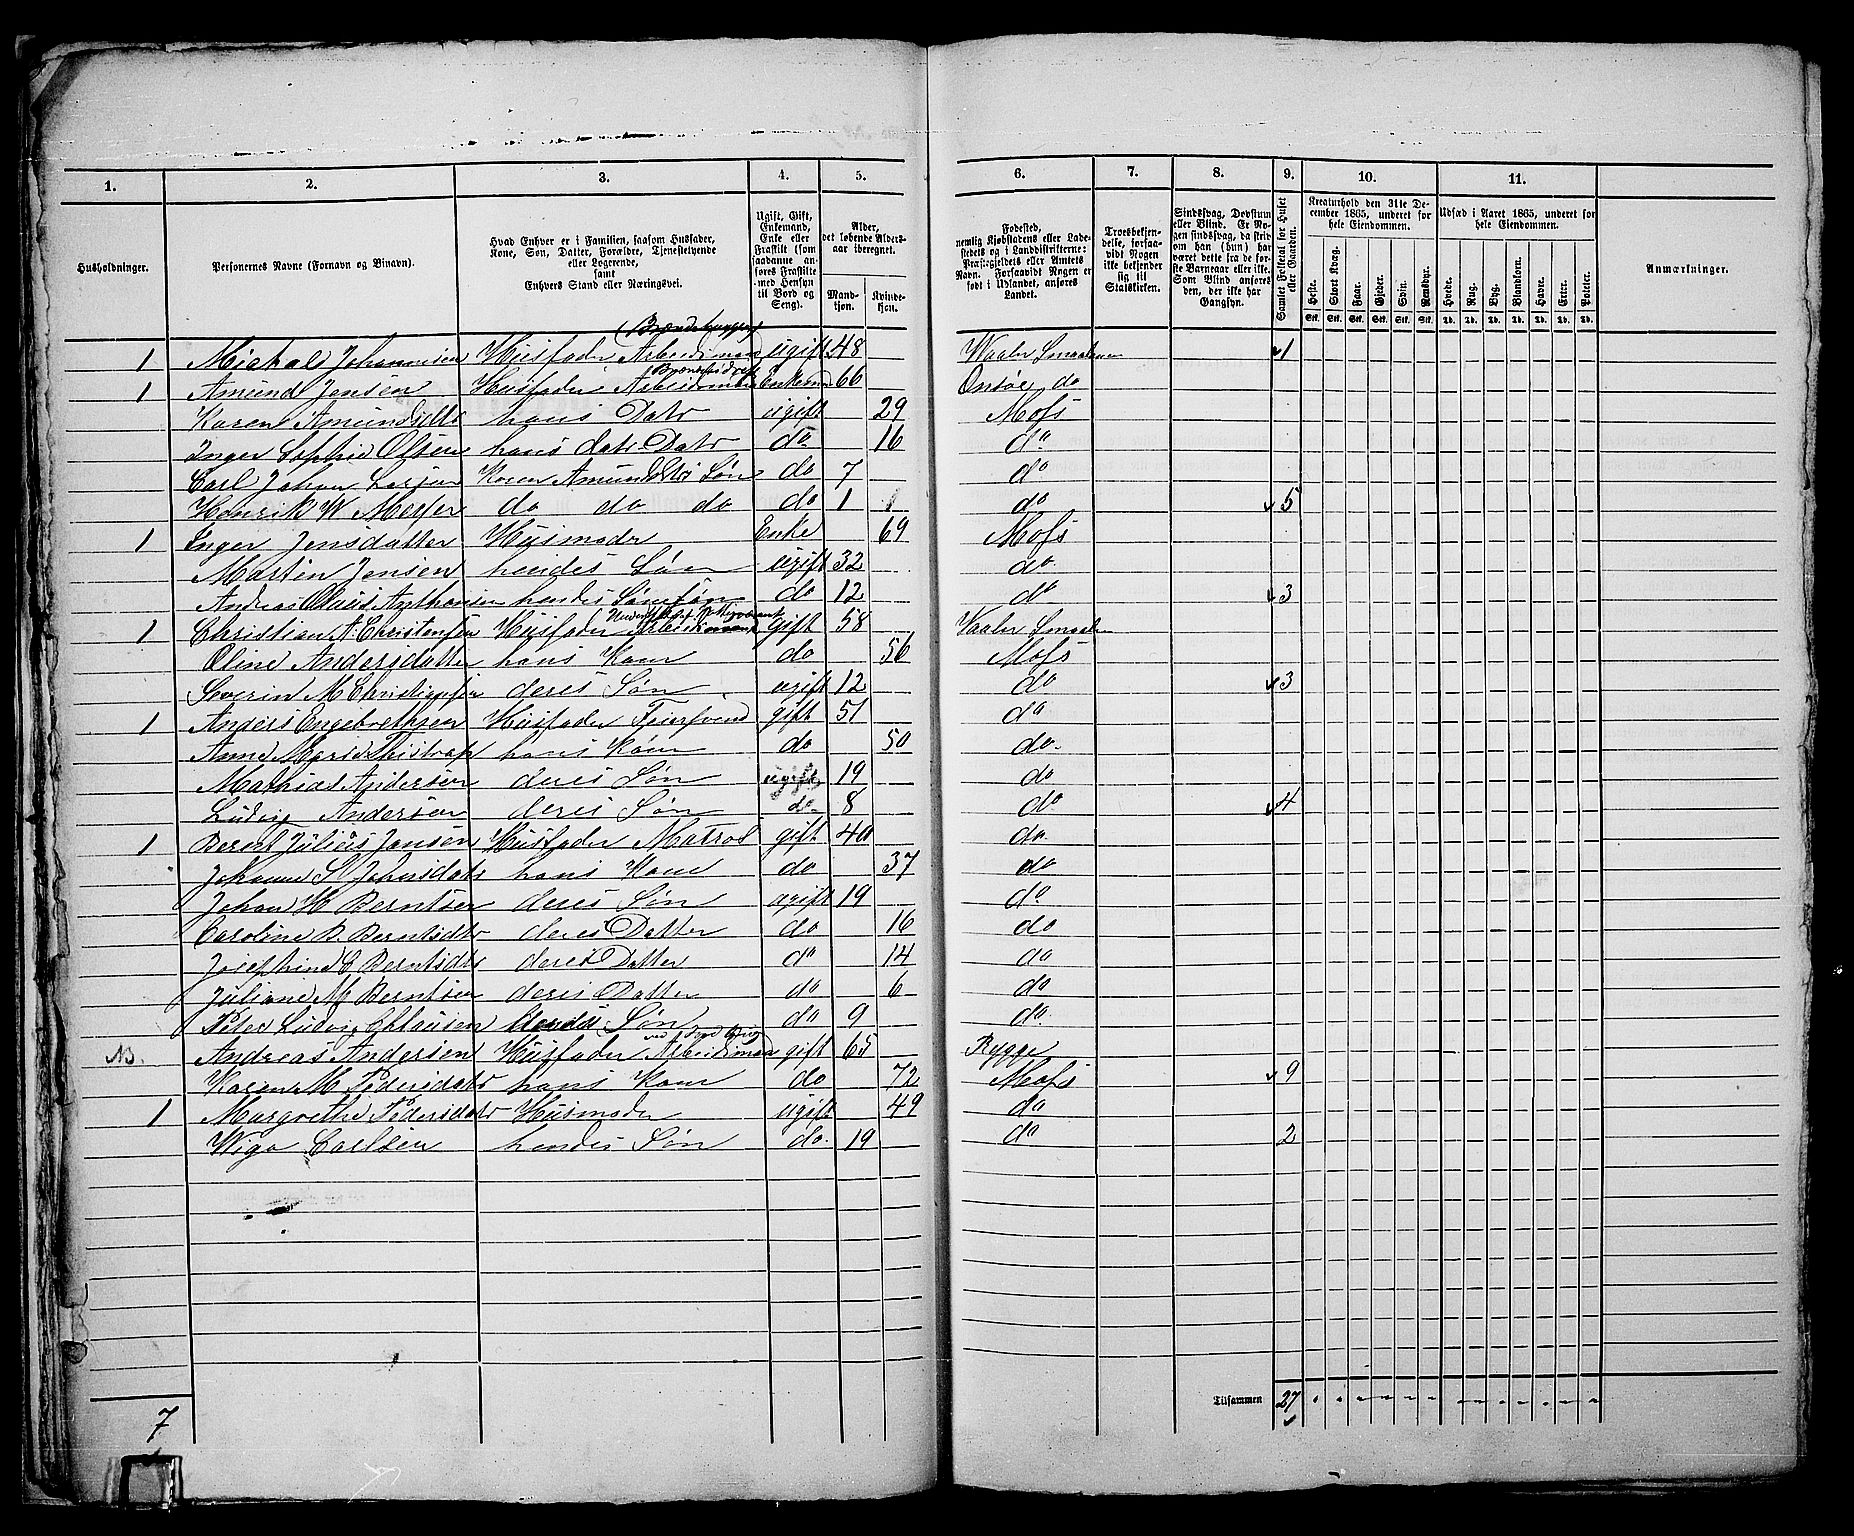 1. 2. 3. 4. 5. 6. 7. 8. 9. 10. 11.
Husholdninger.
Personernes Navne (Fornavn og Binavn).
Hvad Enhver er i Familien, saasom Husfader, Kone, Søn, Datter, Forældre, Tjenestetyende eller Logerende, samt Enhvers Stand eller Næringsvei.
Ugift, Gift, Enkemand, Enke eller Fraskilt (som saadanne anføres Fraskilte med Hensyn til Bord og Seng).
Alder, det løbende Aldersaar iberegnet.
Mandkjøn. Kvindekjøn.
Fødested, nemlig Kjøbstadens eller Ladestedets og i Landdistrikterne: Præstegjeldets eller Amtets Navn. Forsaavidt Nogen er født i Udlandet, anføres Landet.
Troesbekjendelse, forsaavidt Nogen ikke bekjender sig til Statskirken.
Sindssvag, Døvstum eller Blind. Er Nogen sindssvag, da skrives om han (hun) har været dette fra de første Barneaar eller ikke. Som Blind anføres den, der ikke har Gangsyn.
Samlet Folketal for Huset eller Gaarden.
Kreaturhold den 31te December 1865, underet for hele Eiendommen.
Heste. Stort Kvæg. Faar. Gjeder. Svin. Rensdyr.
Stk. Stk. Stk. Stk. Stk. Stk.
Udsæd i Aaret 1865, underet for hele Eiendommen.
Hvede. Rug. Byg. Blandkorn. Havre. Erter. Poteter.
Td. Td. Td. Td. Td. Td. Td.
Anmærkninger.
1 Michal Johannesen Husfader Arbeidsmand ugift 48 Vaaler Smaalenene 1
1 Amund Jensen Husfader Arbeidsmand Enkemd 66 Onsøe do
Karen Amundsdtr hans Datr ugift 29 Moss
Inger Sophie Olsen hans datr Datr do 16 do
Carl Johan Larsen Karen Amundsdtrs Søn do 7 do
Henrik W Meyer do do do do 1 do 5
1 Inger Jensdatter Husmoder Enke 69 Moss
Martin Jensen hendes Søn ugift 32 do
Andreas Olaus Anthonsen hendes Sønnesøn do 12 do 3
1 Christian A. Christensen Husfader gift 58 Vaaler Smaalen
Oline Andersdatter hans Kone do 56 Moss
Severin M Christiansen deres Søn ugift 12 do 3
1 Anders Engebrethsen Husfader Feiersvend gift 51 do
Anne Marie hans Kone do 50 do
Mathias Andersen deres Søn ugift 19 do
Ludvig Andersen deres Søn do 8 do 4
1 Berent Julius Jansen Husfader Matros gift 40 do
Johanne S Johnsdatr hans Kone do 37 do
Johan H Berntsen deres Søn ugift 19 do
Caroline B. Berntsdtr deres Datter do 16 do
Josephine C Berntsdtr deres Datter do 14 do
Juliane M Berntsen deres Datter do 6 do
Peter Ludvig Clausen Søn do 9 do
NB. Andreas Andersen Husfader Arbeidsmand gift 65 Rygge
Karen M Pedersdatr hans Kone do 72 Moss 9
1 Margrethe Pedersdatr Husmoder ugift 49 do
Wigo Carlsen hendes Søn do 19 do 2
7 Tilsammen 27